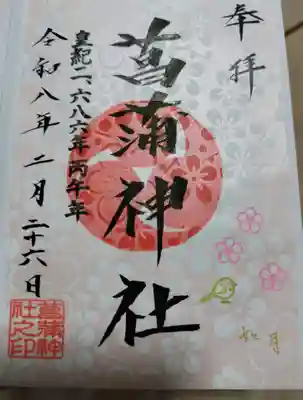 奉拝
菖蒲神社
皇紀二、六八六年丙午年
令和八年二月二十六日
菖蒲神社之印
如月